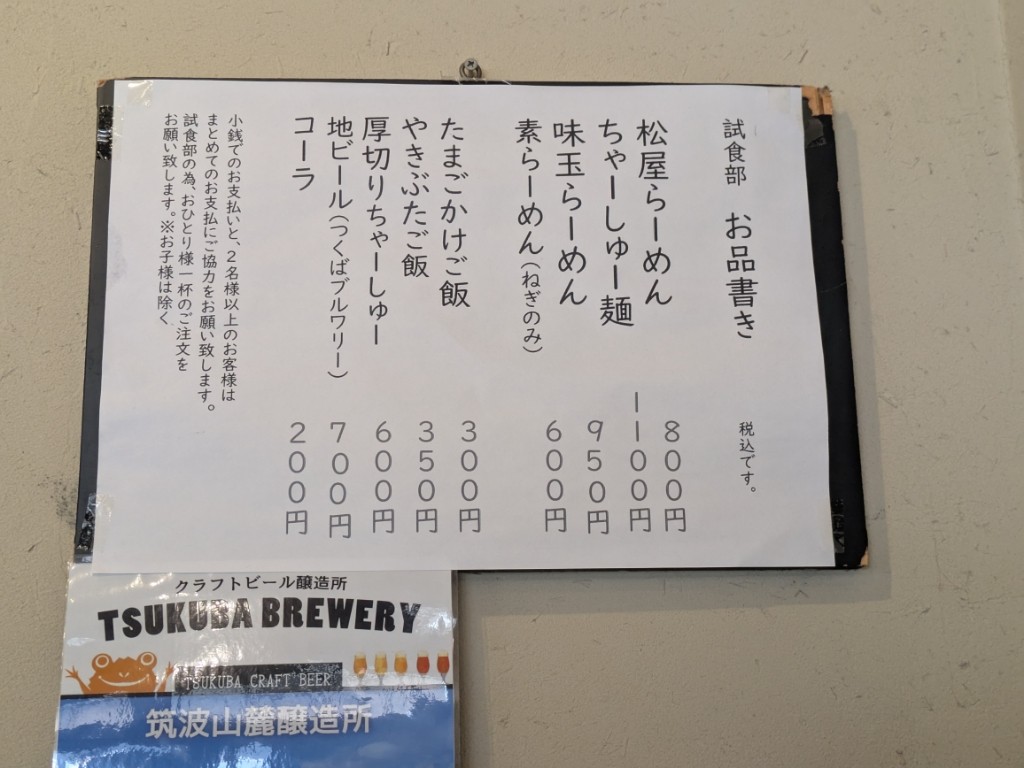 試食部 お品書き 税込です。
松屋らーめん 800円
ちゃーしゅー麺 1100円
味玉らーめん 950円
素らーめん(ねぎのみ) 600円
たまごかけご飯 300円
やきぶたご飯 350円
厚切りちゃーしゅー 600円
地ビール(つくばブルワリー) 700円
コーラ 200円
小銭でのお支払いと、2名様以上のお客様は
まとめてのお支払にご協力をお願い致します。
試食部の為、おひとり様一杯のご注文を
お願い致します。※お子様は除く
クラフトビール醸造所
TSUKUBA BREWERY
TSUKUBA CRAFT BEER
筑波山麓醸造所